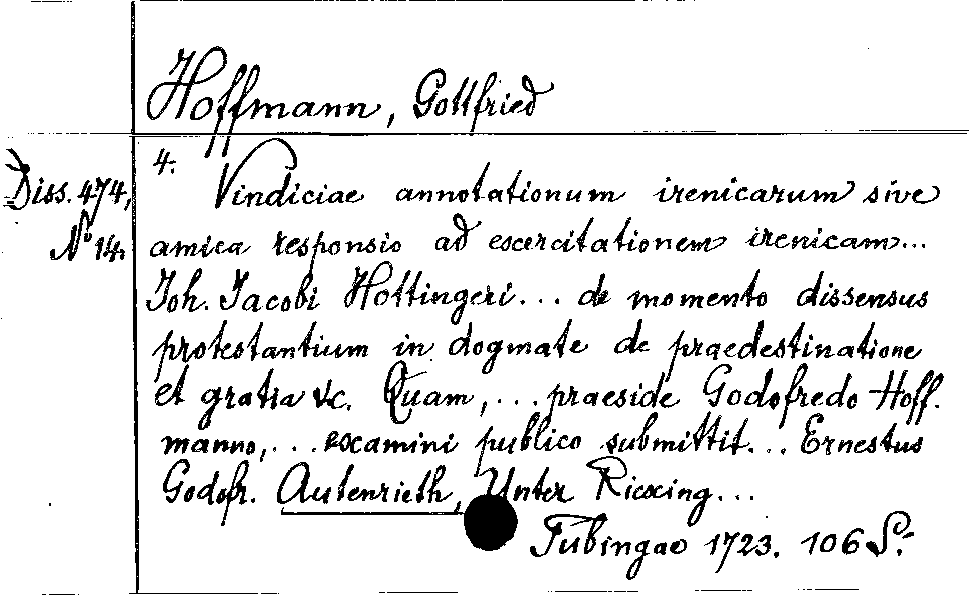 Hoffmann, Gottfried
4.
Diss. 474,
No 14.
Vindiciae annotationum irenicarum sive
amica responsio ad exercitationem irenicam...
Joh. Jacobi Hottingeri... de momento dissensus
protestantium in dogmate de praedestinatione
et gratia &c. Quam,... praeside Godofredo Hoff-
manno,... examini publico submittit... Ernestus
Godofr. Autenrieth, Unter Riexing...
Tubingae 1723. 106 S.